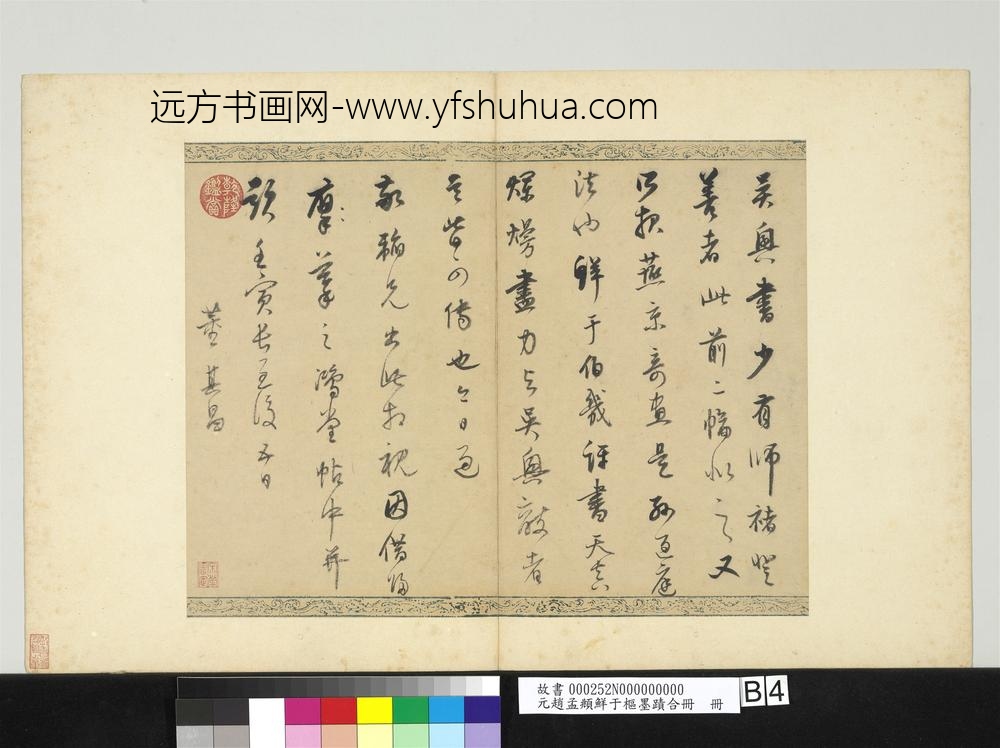 远方书画网-www.yfshuhua.com
吳興書少有師褚登
善者此前二幅似之又
只赤燕京奇畫是孫過庭
法也鮮于伯幾評書天真
爛熳盡力與吳興敵者
之皆可傳也今日過
敬韜兄出此相視因借歸
摹筆之鴻堂帖中並
題壬寅長至後五日
董其昌
乾隆鑑賞
故書 000252N000000000
元趙孟頫鮮于樞墨蹟合冊 冊
B 4